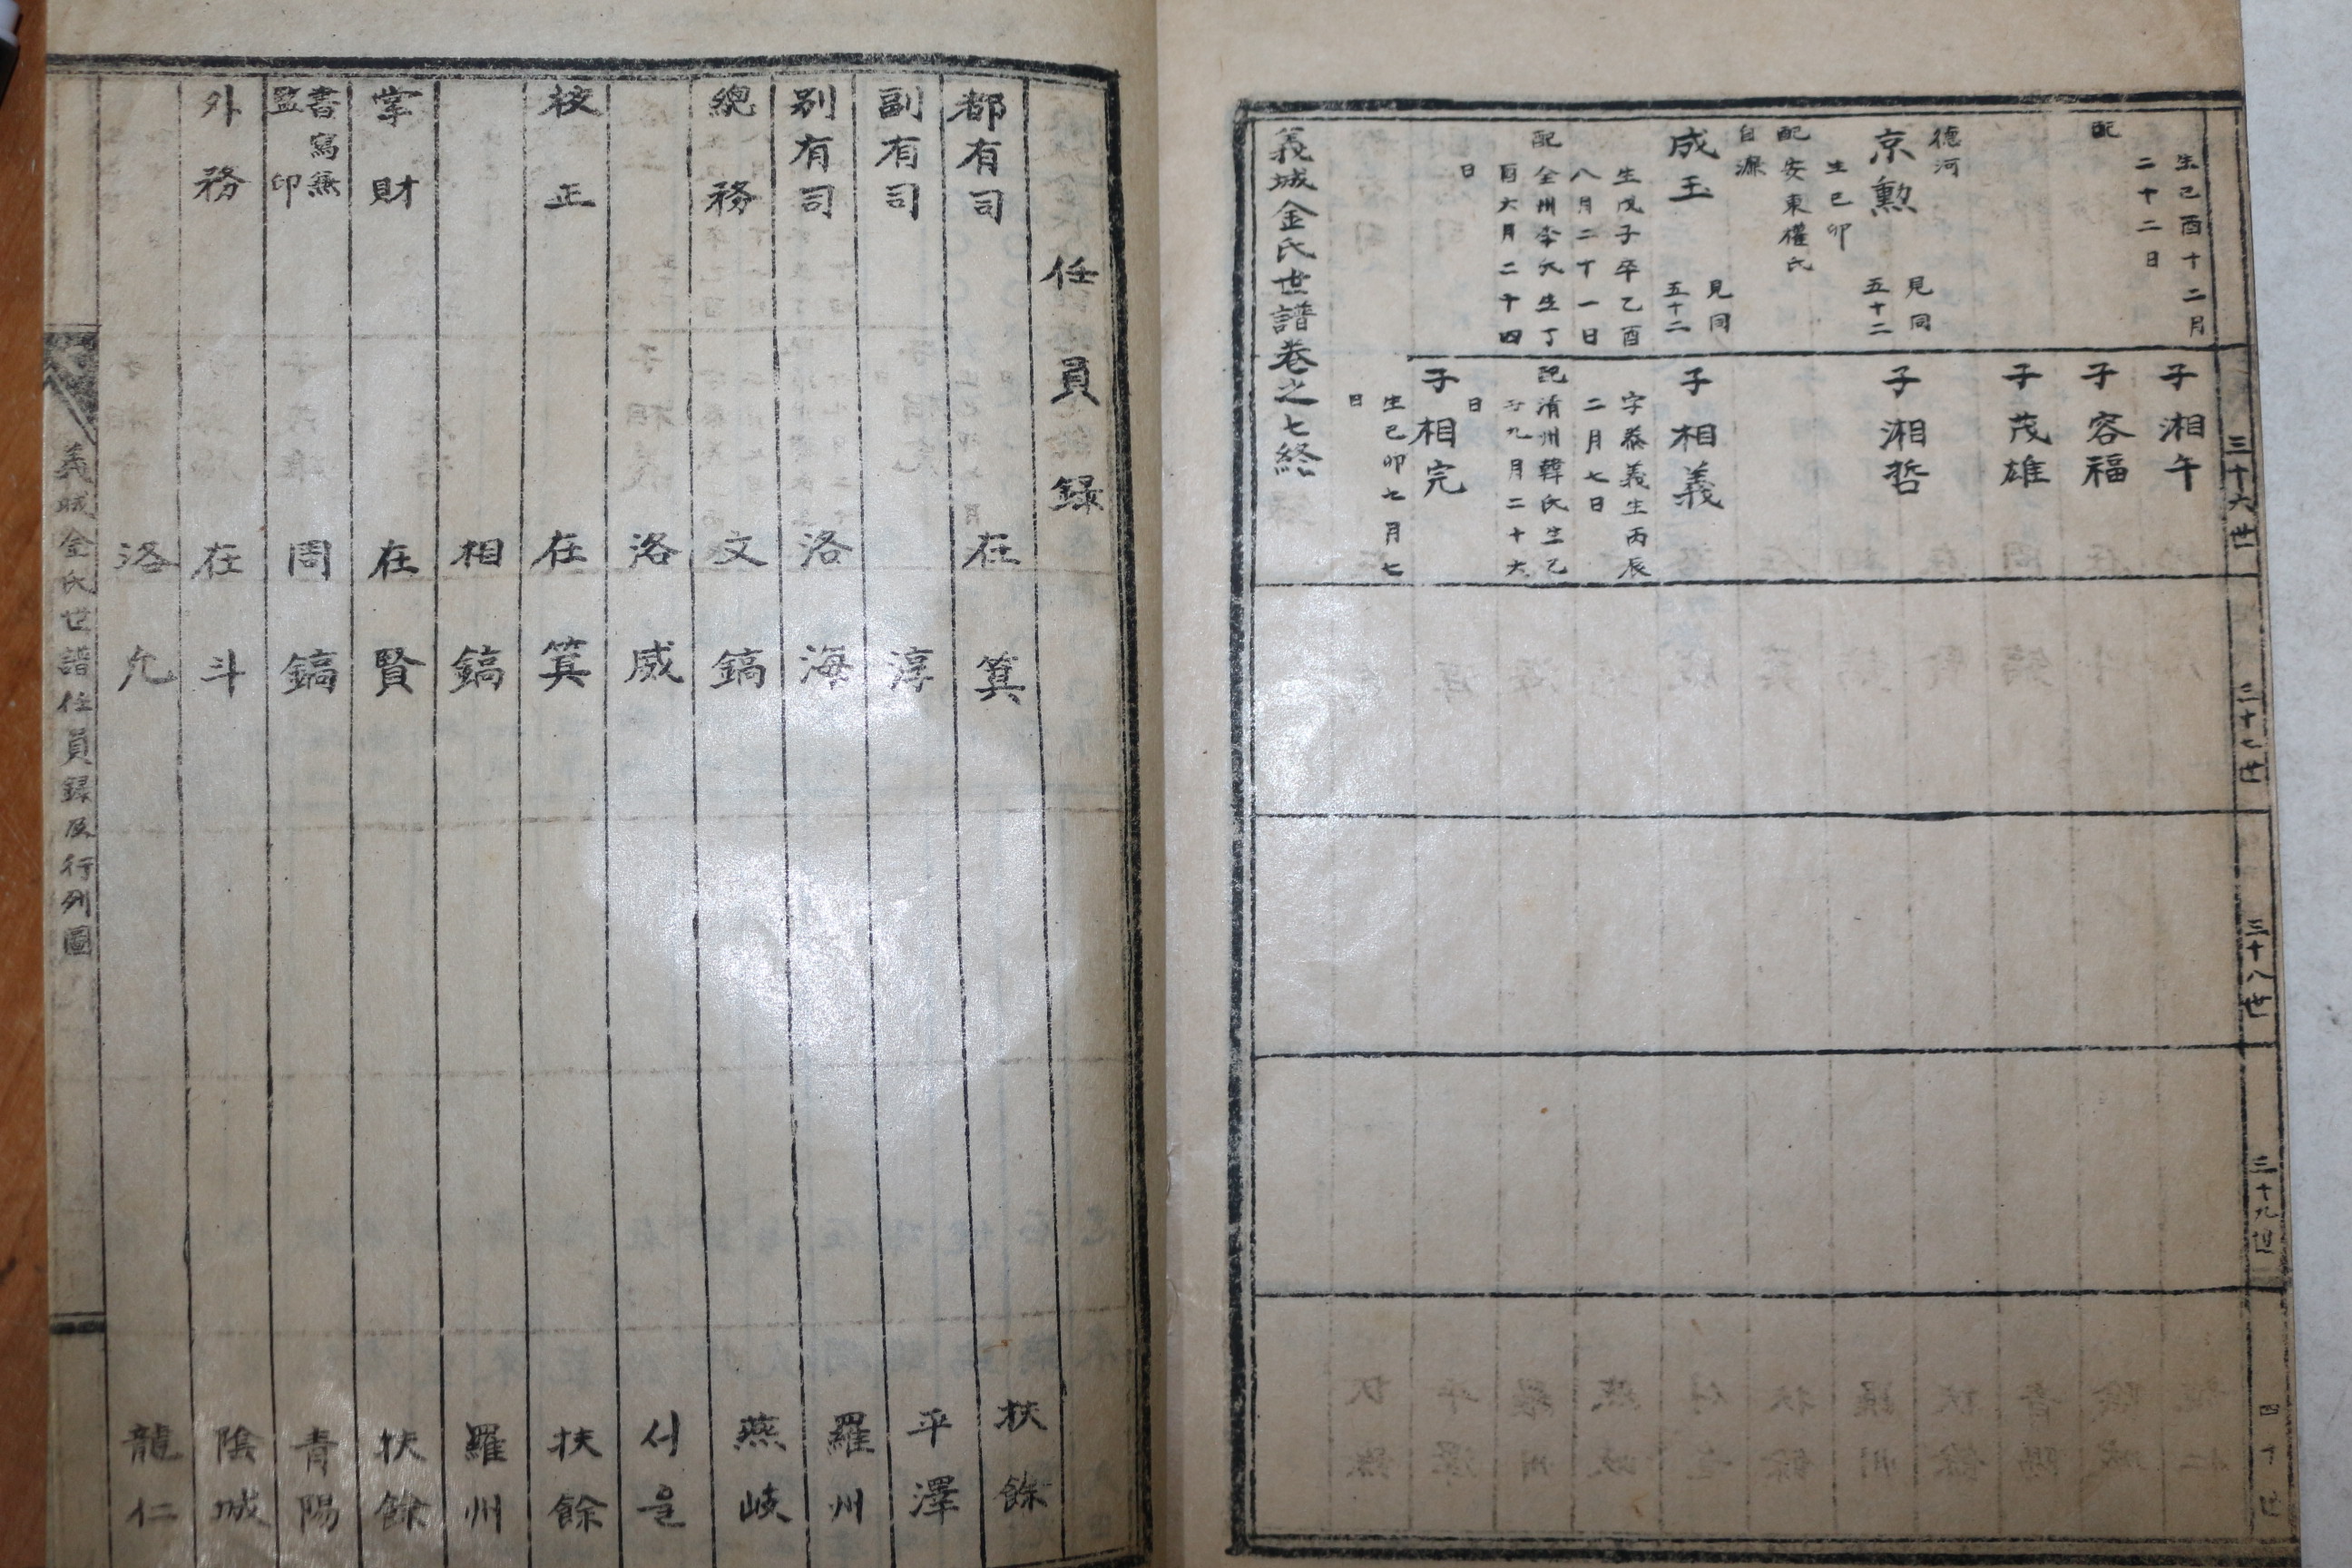 三十六世
三十七世
三十八世
三十九世
四十世
生己酉十二月
二十二日
配
德河
京勲 見同
五十二
生己卯
配安東權氏
自源
成玉 見同
五十二
生戊子卒乙酉
八月二十一日
配全州李氏生丁
酉六月二十四
日
子湘午
子容福
子茂雄
子湘哲
子相義
字泰義生丙辰
二月七日
配清州韓氏生己
九月二十六
日
子相完
生己卯七月七
日
義城金氏世譜卷之七終
任員録
都有司 在箕 扶餘
副有司 淳 平澤
别有司 洛海 羅州
總務 文鎬 燕岐
洛威 서울
校正 在箕 扶餘
相鎬 羅州
掌財 在賢 扶餘
書寫無
監印 周鎬 青陽
外務 在斗 陰城
洛允 龍仁
義城金氏世譜任員録及行列圖